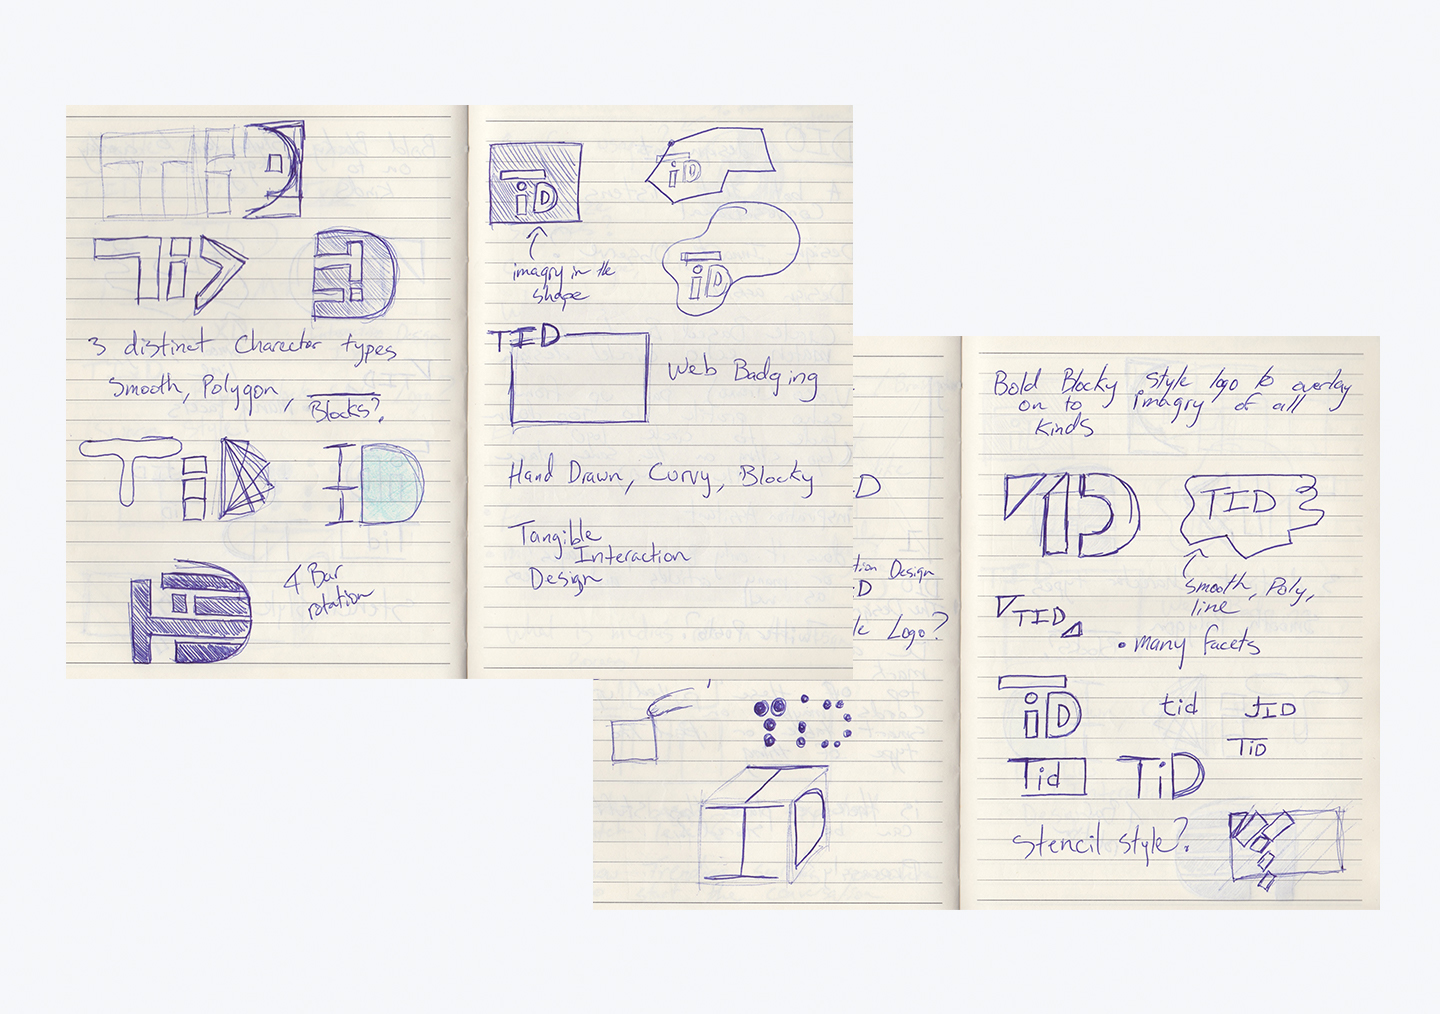 TiD
TiD
TiD
3 distinct Charector types
Smooth, Polygon, Blocks?
TiD
TID
TiD
4 Bar
rotation
TiD
TiD
TiD
imagry in the
shape
TID
Web Badging
Hand Drawn, Curvy, Blocky
Tangible
Interaction
Design
D
tion Design
D
Logo?
TID
TID
Bold Blocky style logo to overlay
on to imagry of all
kinds
TID
TID
Smooth, Poly,
line
TID
• many facets
TiD
tid
TID
TiD
Tid
TiD
Stencil style?